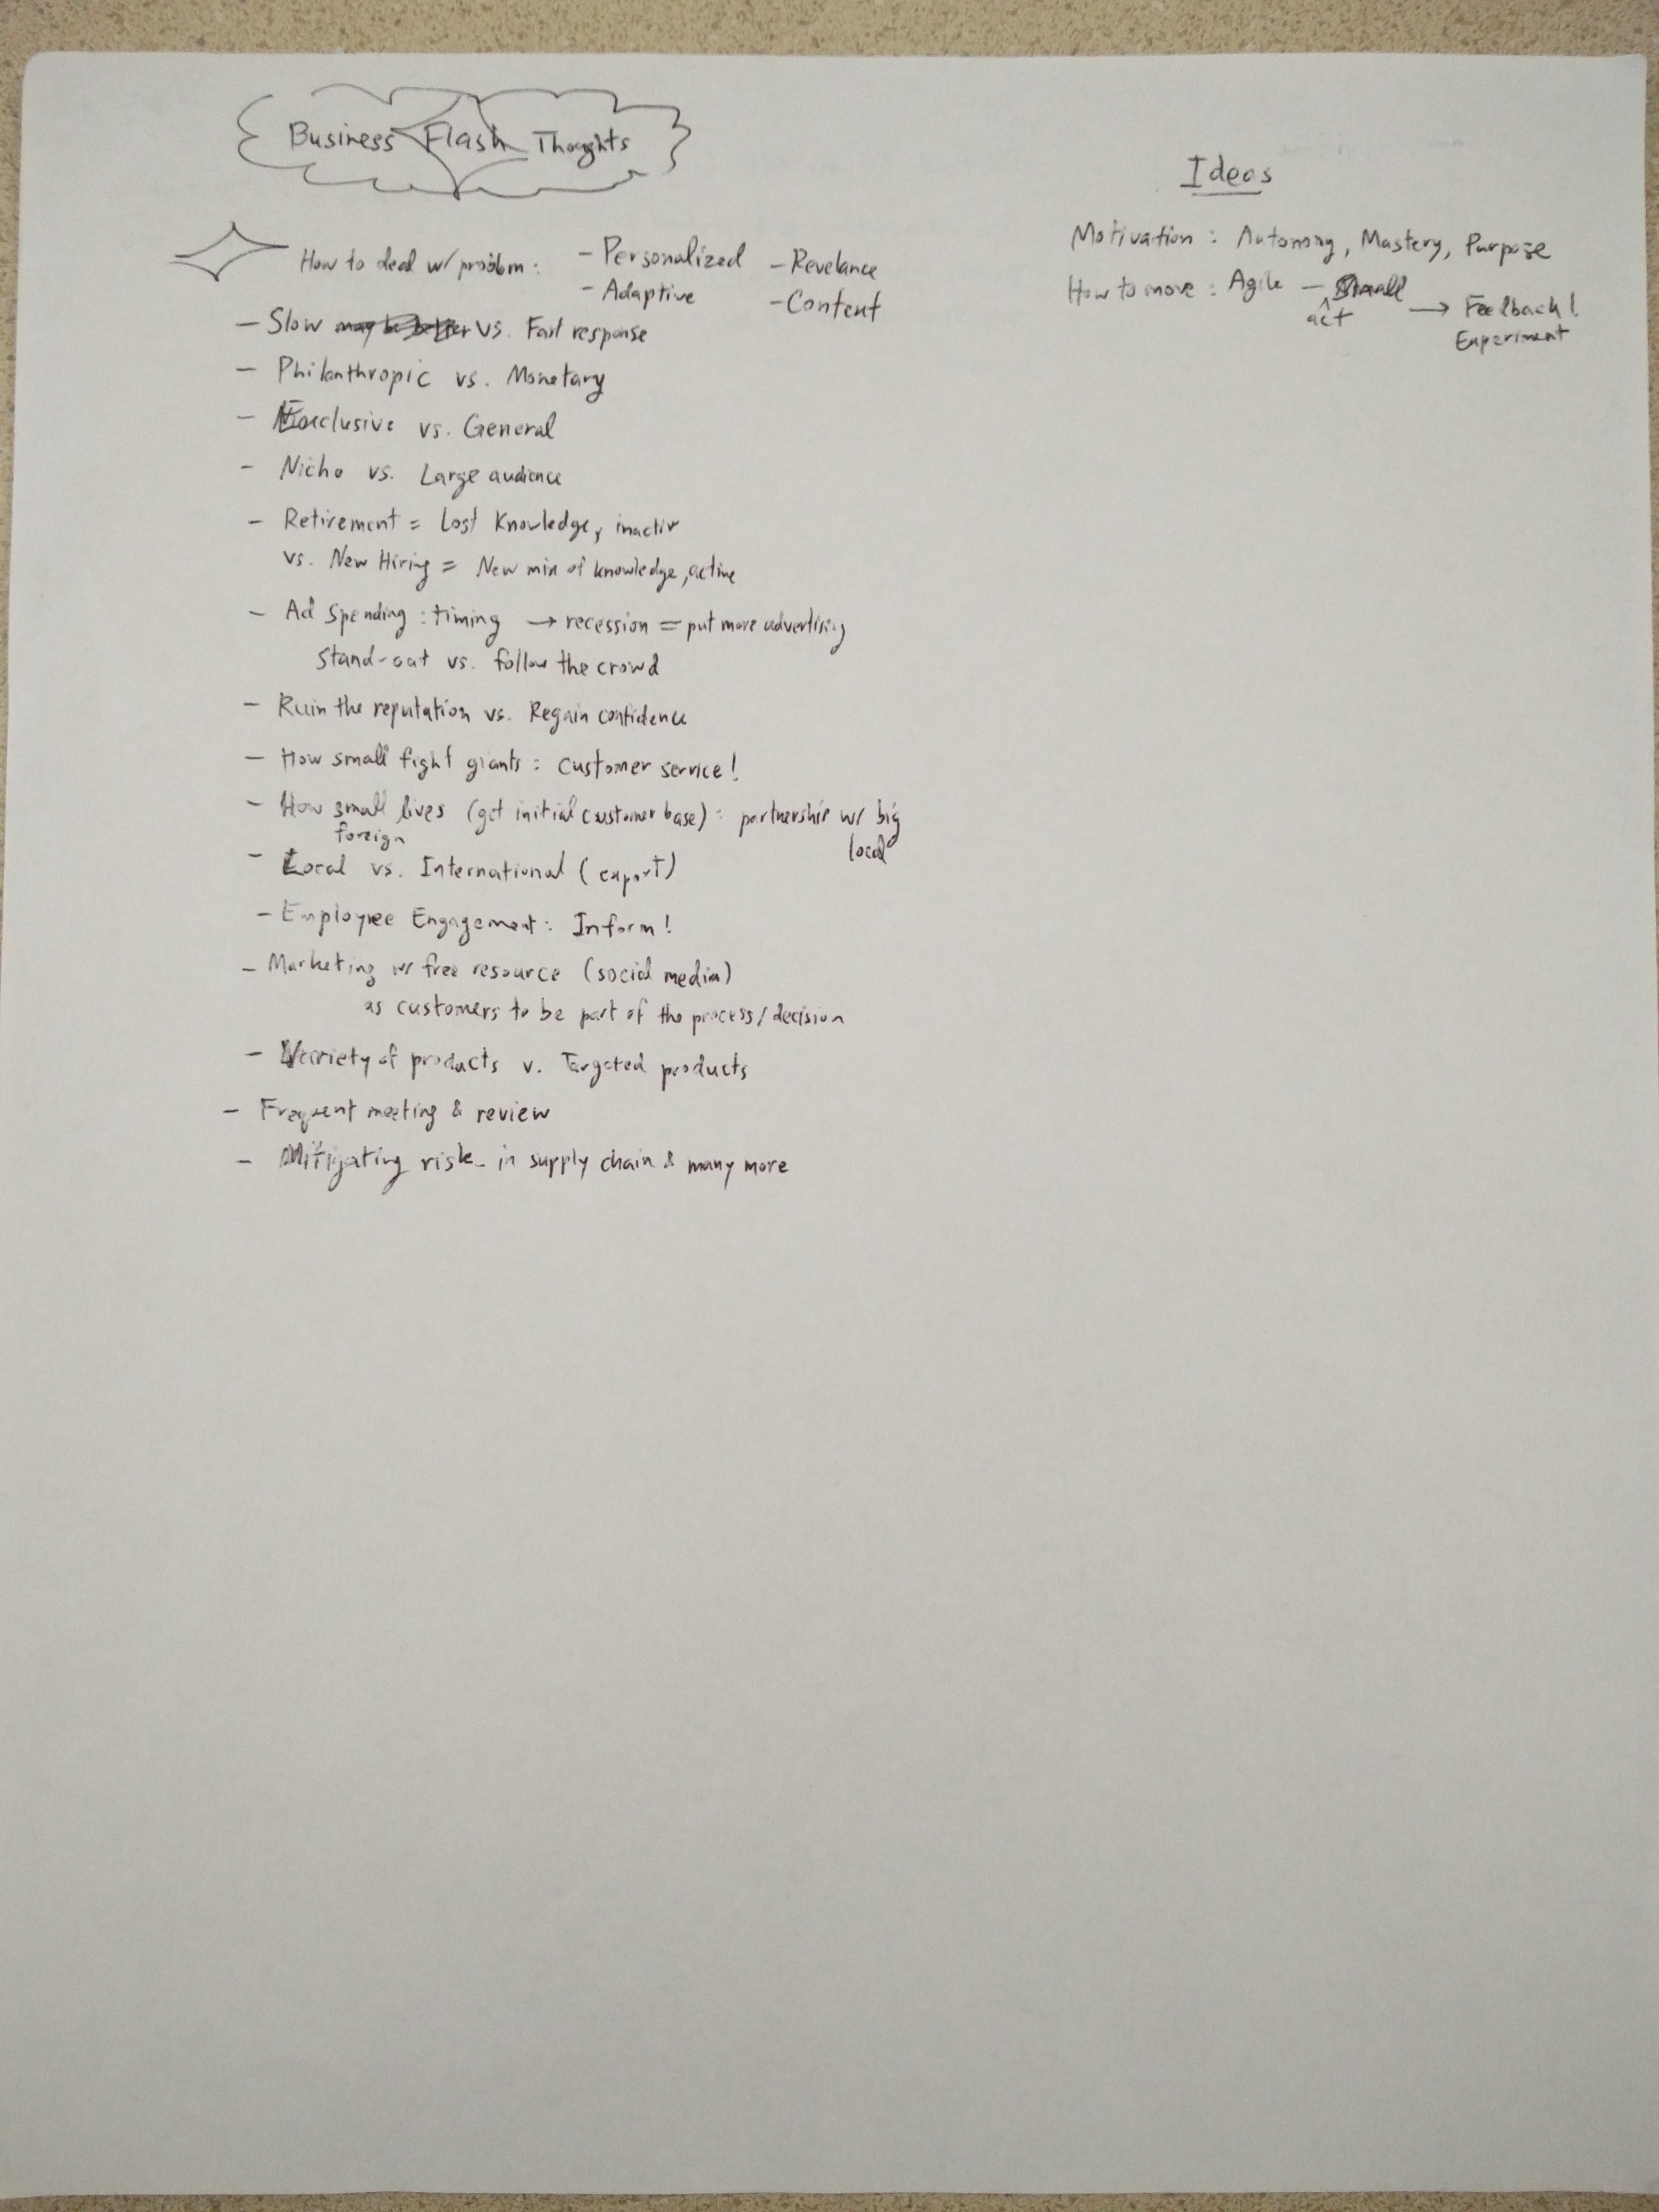 Business Flash Thoughts
How to deal w/ problem : - Personalized - Revelance
- Adaptive - Content
- Slow may be better vs. Fast response
- Philanthropic vs. Monetary
- Exclusive vs. General
- Niche vs. Large audience
- Retirement = Lost Knowledge, inactiv
vs. New Hiring = New mix of knowledge, active
- Ad Spending : timing → recession = put more advertising
Stand-out vs. follow the crowd
- Ruin the reputation vs. Regain confidence
- How small fight giants : customer service!
- How small lives (get initial customer base) : partnership w/ big
foreign local
- Local vs. International (export)
- Employee Engagement : Inform!
- Marketing w/ free resource (social media)
as customers to be part of the process/decision
- Variety of products v. Targeted products
- Frequent meeting & review
- Mitigating risk - in supply chain & many more
Ideas
Motivation : Autonomy, Mastery, Purpose
How to move : Agile - Small
act → Feedback!
Experiment